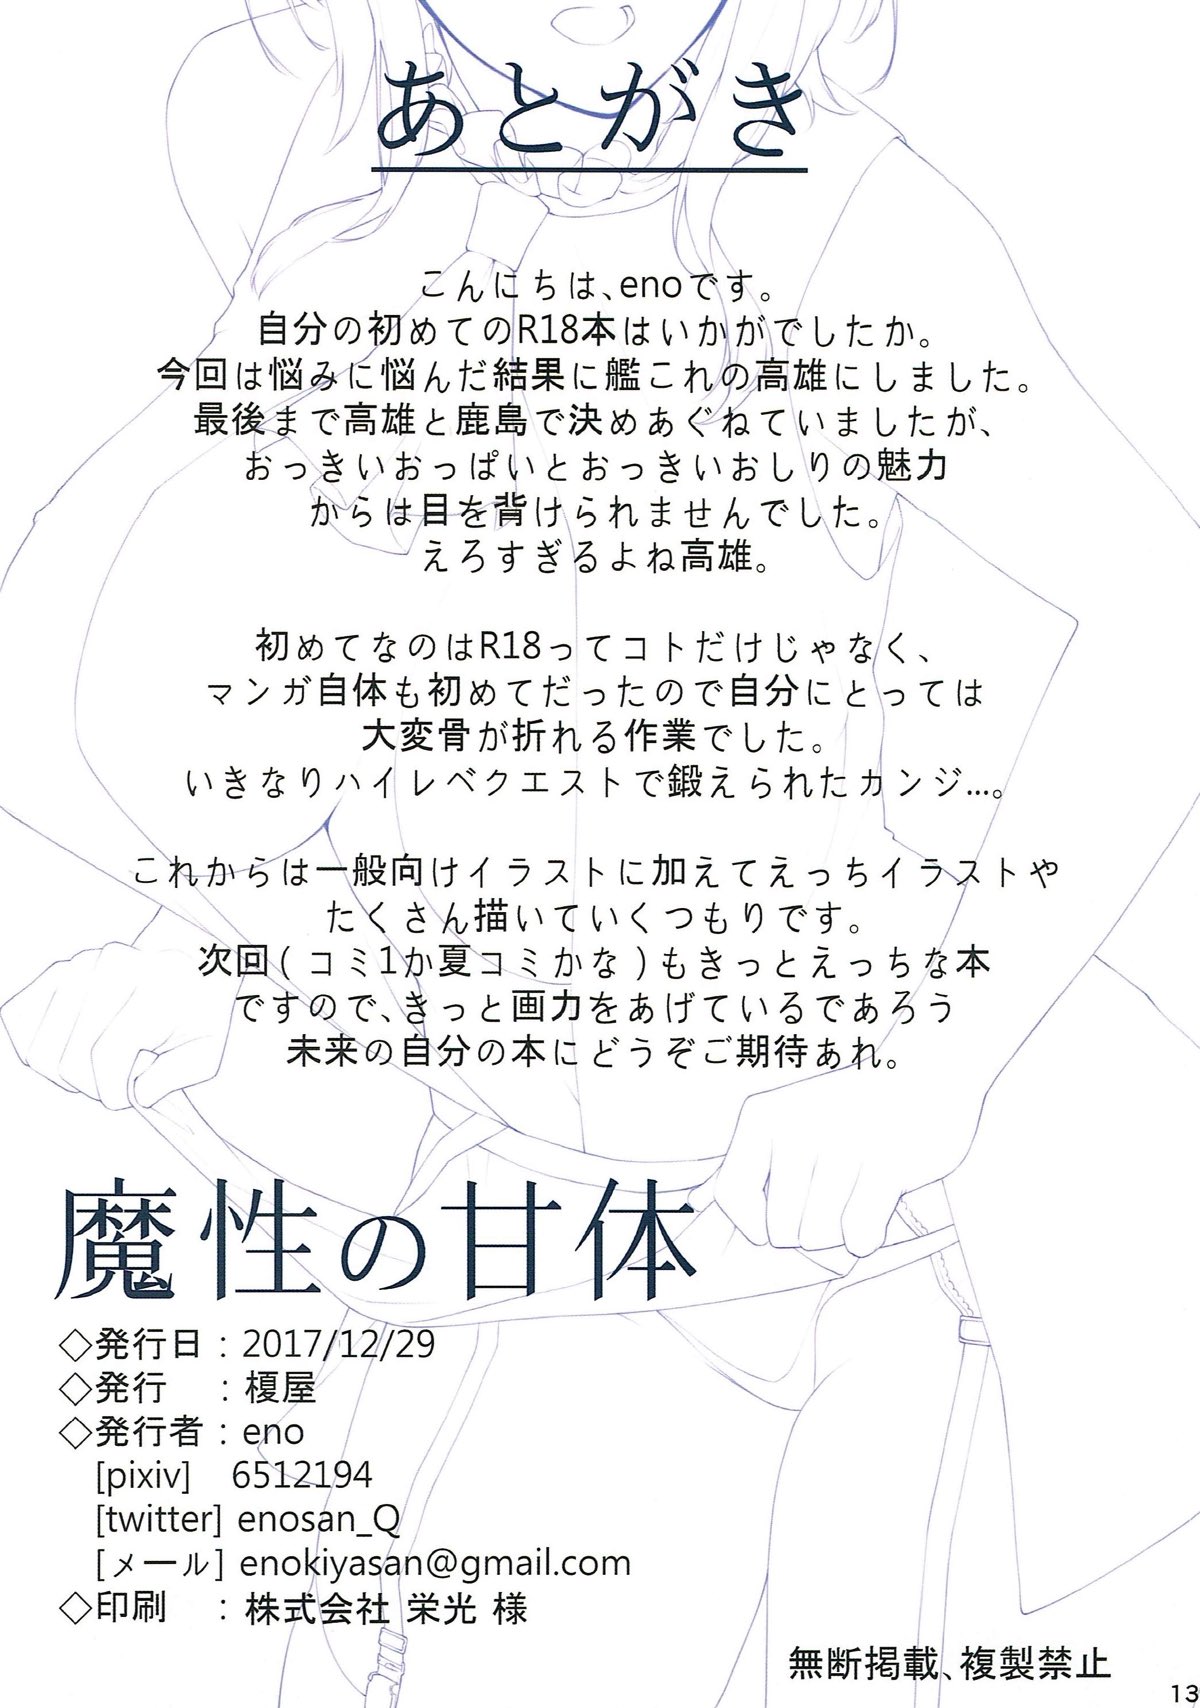 あとがき
こんにちは、enoです。
自分の初めてのR18本はいかがでしたか。
今回は悩みに悩んだ結果に艦これの高雄にしました。
最後まで高雄と鹿島で決めあぐねていましたが、
おっきいおっぱいとおっきいおしりの魅力
からは目を背けられませんでした。
えろすぎるよね高雄。
初めてなのはR18ってコトだけじゃなく、
マンガ自体も初めてだったので自分にとっては
大変骨が折れる作業でした。
いきなりハイレベクエストで鍛えられたカンジ...。
これからは一般向けイラストに加えてえっちイラストや
たくさん描いていくつもりです。
次回(コミ1か夏コミかな)もきっとえっちな本
ですので、きっと画力をあげているであろう
未来の自分の本にどうぞご期待あれ。
魔性の甘体
◇発行日：2017/12/29
◇発行　：榎屋
◇発行者：eno
[pixiv]　6512194
[twitter] enosan_Q
[メール] enokiyasan@gmail.com
◇印刷　：株式会社 栄光 様
無断掲載、複製禁止
13